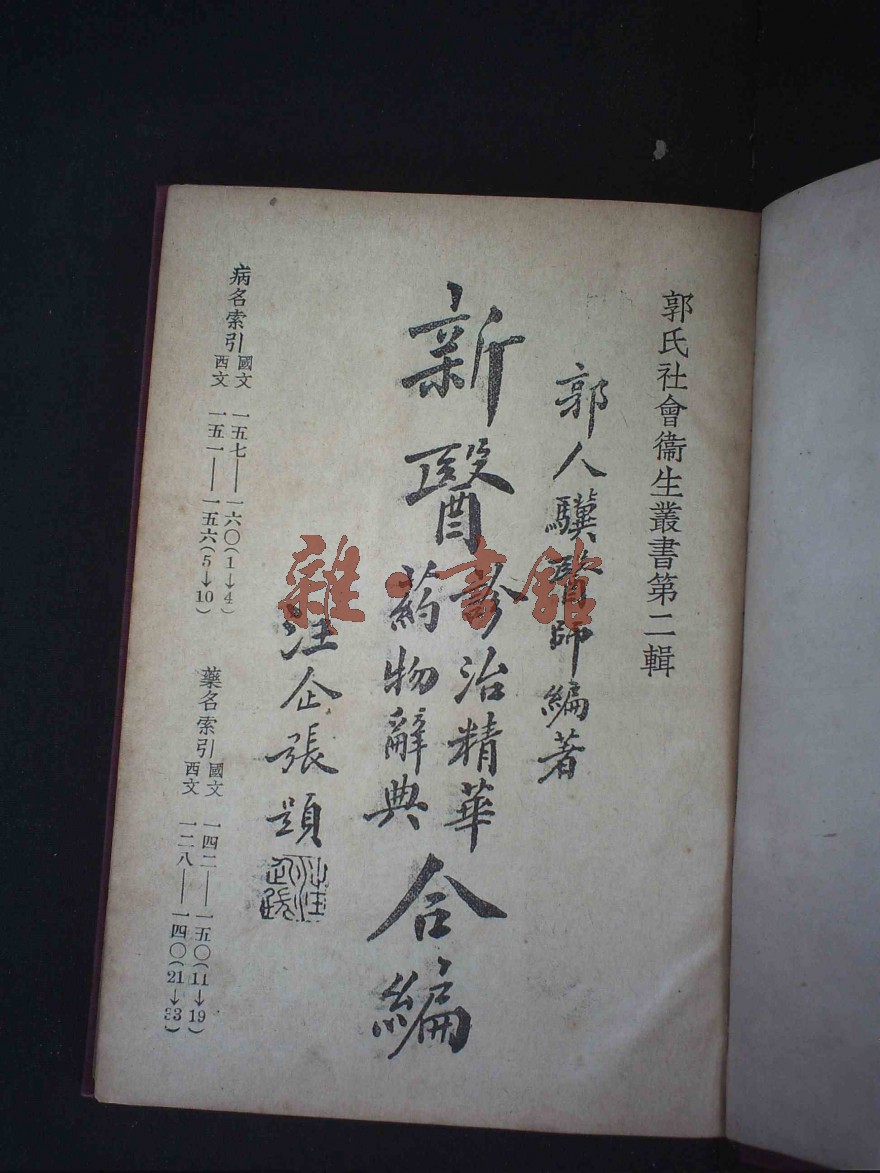 郭氏社會衞生叢書第二輯
郭人驥醫師編著
新醫
診治精華
葯物辭典
合編
汪企張題
病名索引
國文 一五七——一六〇(1→4)
西文 一五一——一五六(5→10)
藥名索引
國文 一四二——一五〇(11→19)
西文 一二八——一四〇(21→33)
雜·書館